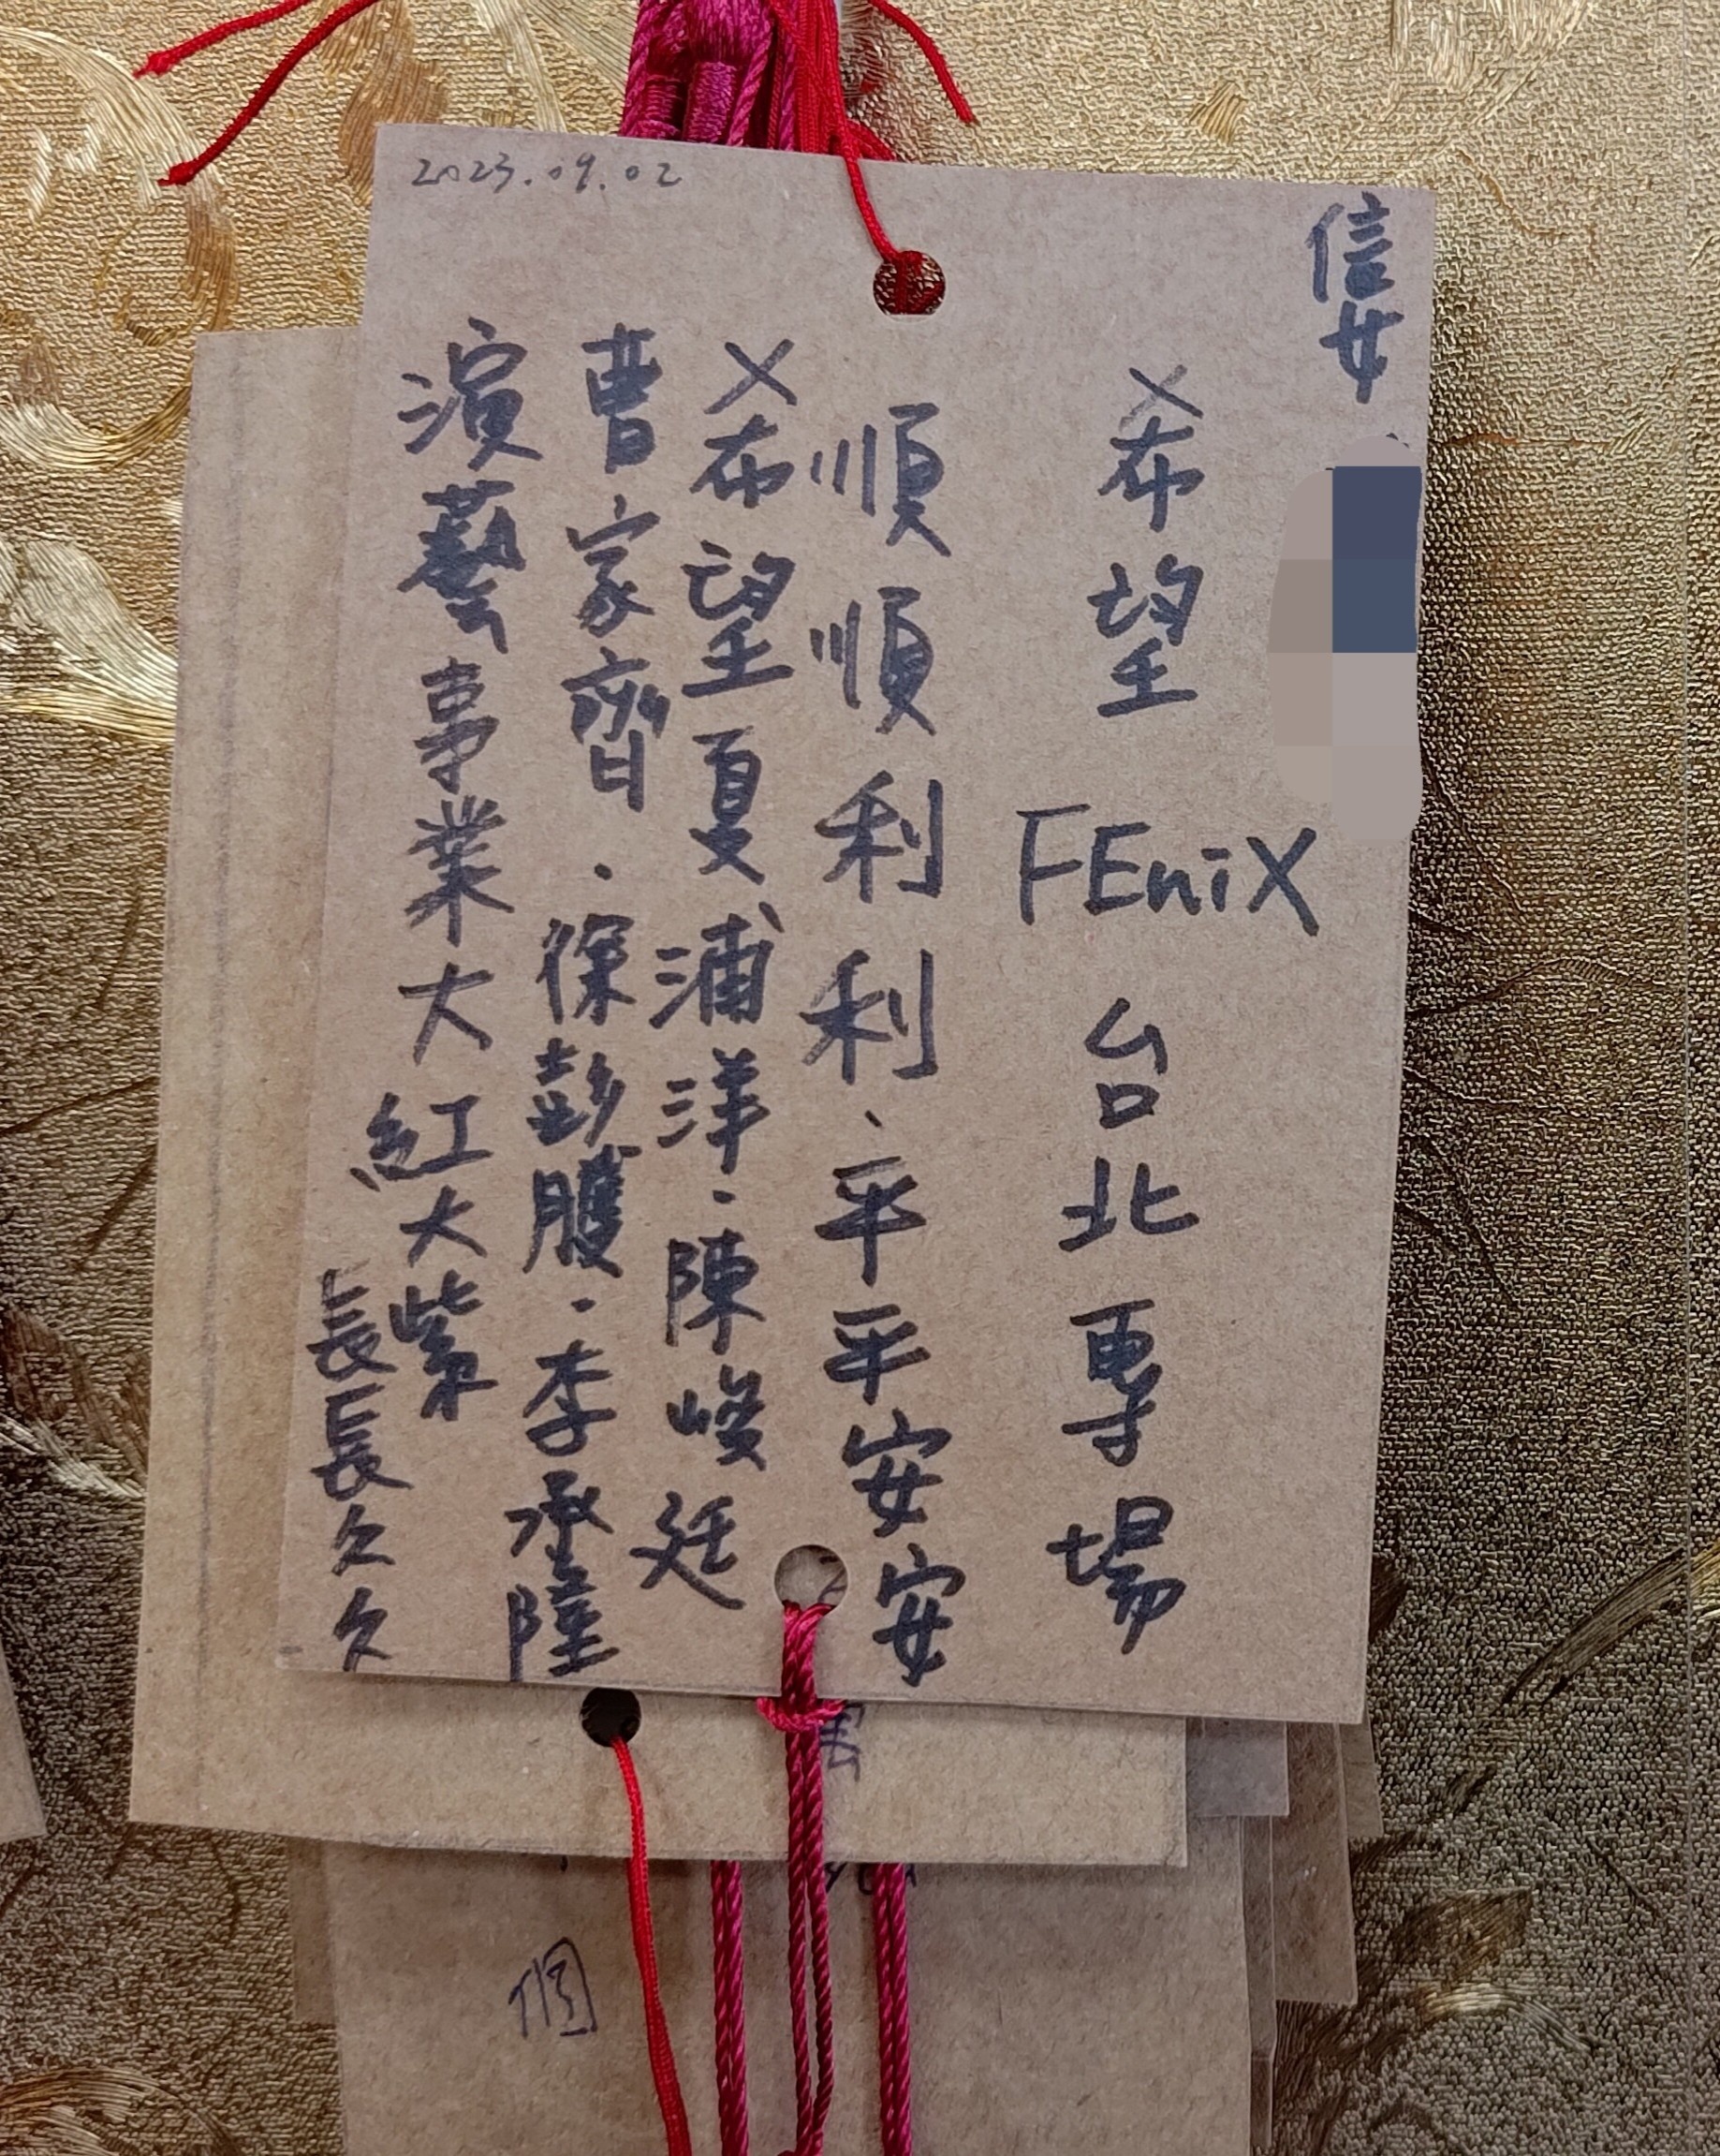 2023.09.02
信女
希望 FEniX 台北專場
順順利利、平平安安
希望夏浦洋·陳峻廷
曹家齊·徐彭䕶·李承隆
演藝事業大紅大紫
長長久久
個